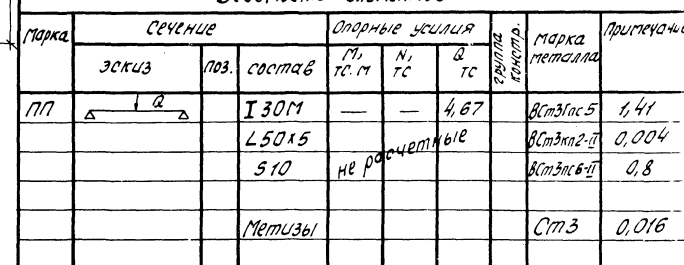 Марка Сечение Опорные усилия группа констр. марка металла Примечание
эскиз поз. состав М, тс.м N, тс Q тс
ПП Q I 30М — — 4,67 ВСт3Гпс5 1,41
L50x5 не расчетные ВСт3кп2-II 0,004
S10 ВСт3пс6-II 0,8
Метизы Ст3 0,016